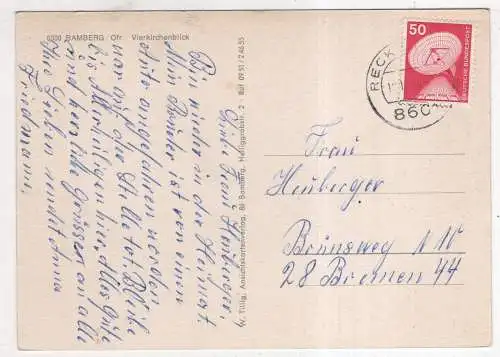 8600 BAMBERG Ofr Vierkirchenblick
Grüß Frau Heuberger,
Bin wieder in der Heimat
Mein Bruder ist von einem
Auto angefahren worden
war auf der Stelle tot. Bleibe
bis Allerheiligen hier, alles Gute
und herzliche Grüssen an alle
Ihre Lieben sendet Anna
Friedmann.
W. Tillig, Ansichtskartenverlag, 86 Bamberg, Heiliggrabstr. 2 - Ruf 0951/24635
50
DEUTSCHE BUNDESPOST
RECK
860
Frau
Heuberger
Brünsweg N 10
28 Bremen 44